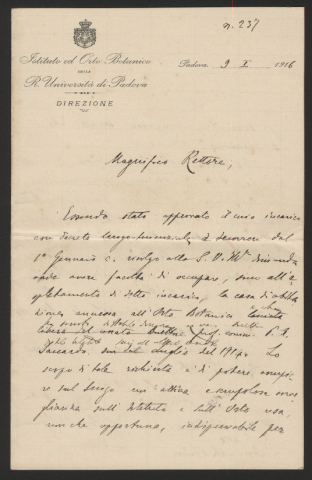 n. 237
Istituto ed Orto Botanico
DELLA
R. Università di Padova
DIREZIONE
Padova, 9 X 1916
Magnifico Rettore,
Essendo stato approvato il mio incarico
con decreto luogotenenziale a decorrere dal
1° Gennaio c. rivolgo alla S. V. Ill.
onde avere facoltà di occupare, sino all'e-
spletamento di detto incarico, la casa d'abita
zione annessa all'Orto Botanico lasciata
Prof. comm. P. A.
Saccardo, luglio del 1915. Lo
scopo di tale richiesta è di potere, compie
re sul luogo un'attiva e scrupolosa sorve
glianza sull'Istituto e sull'Orto resa,
non che opportuna, indispensabile per